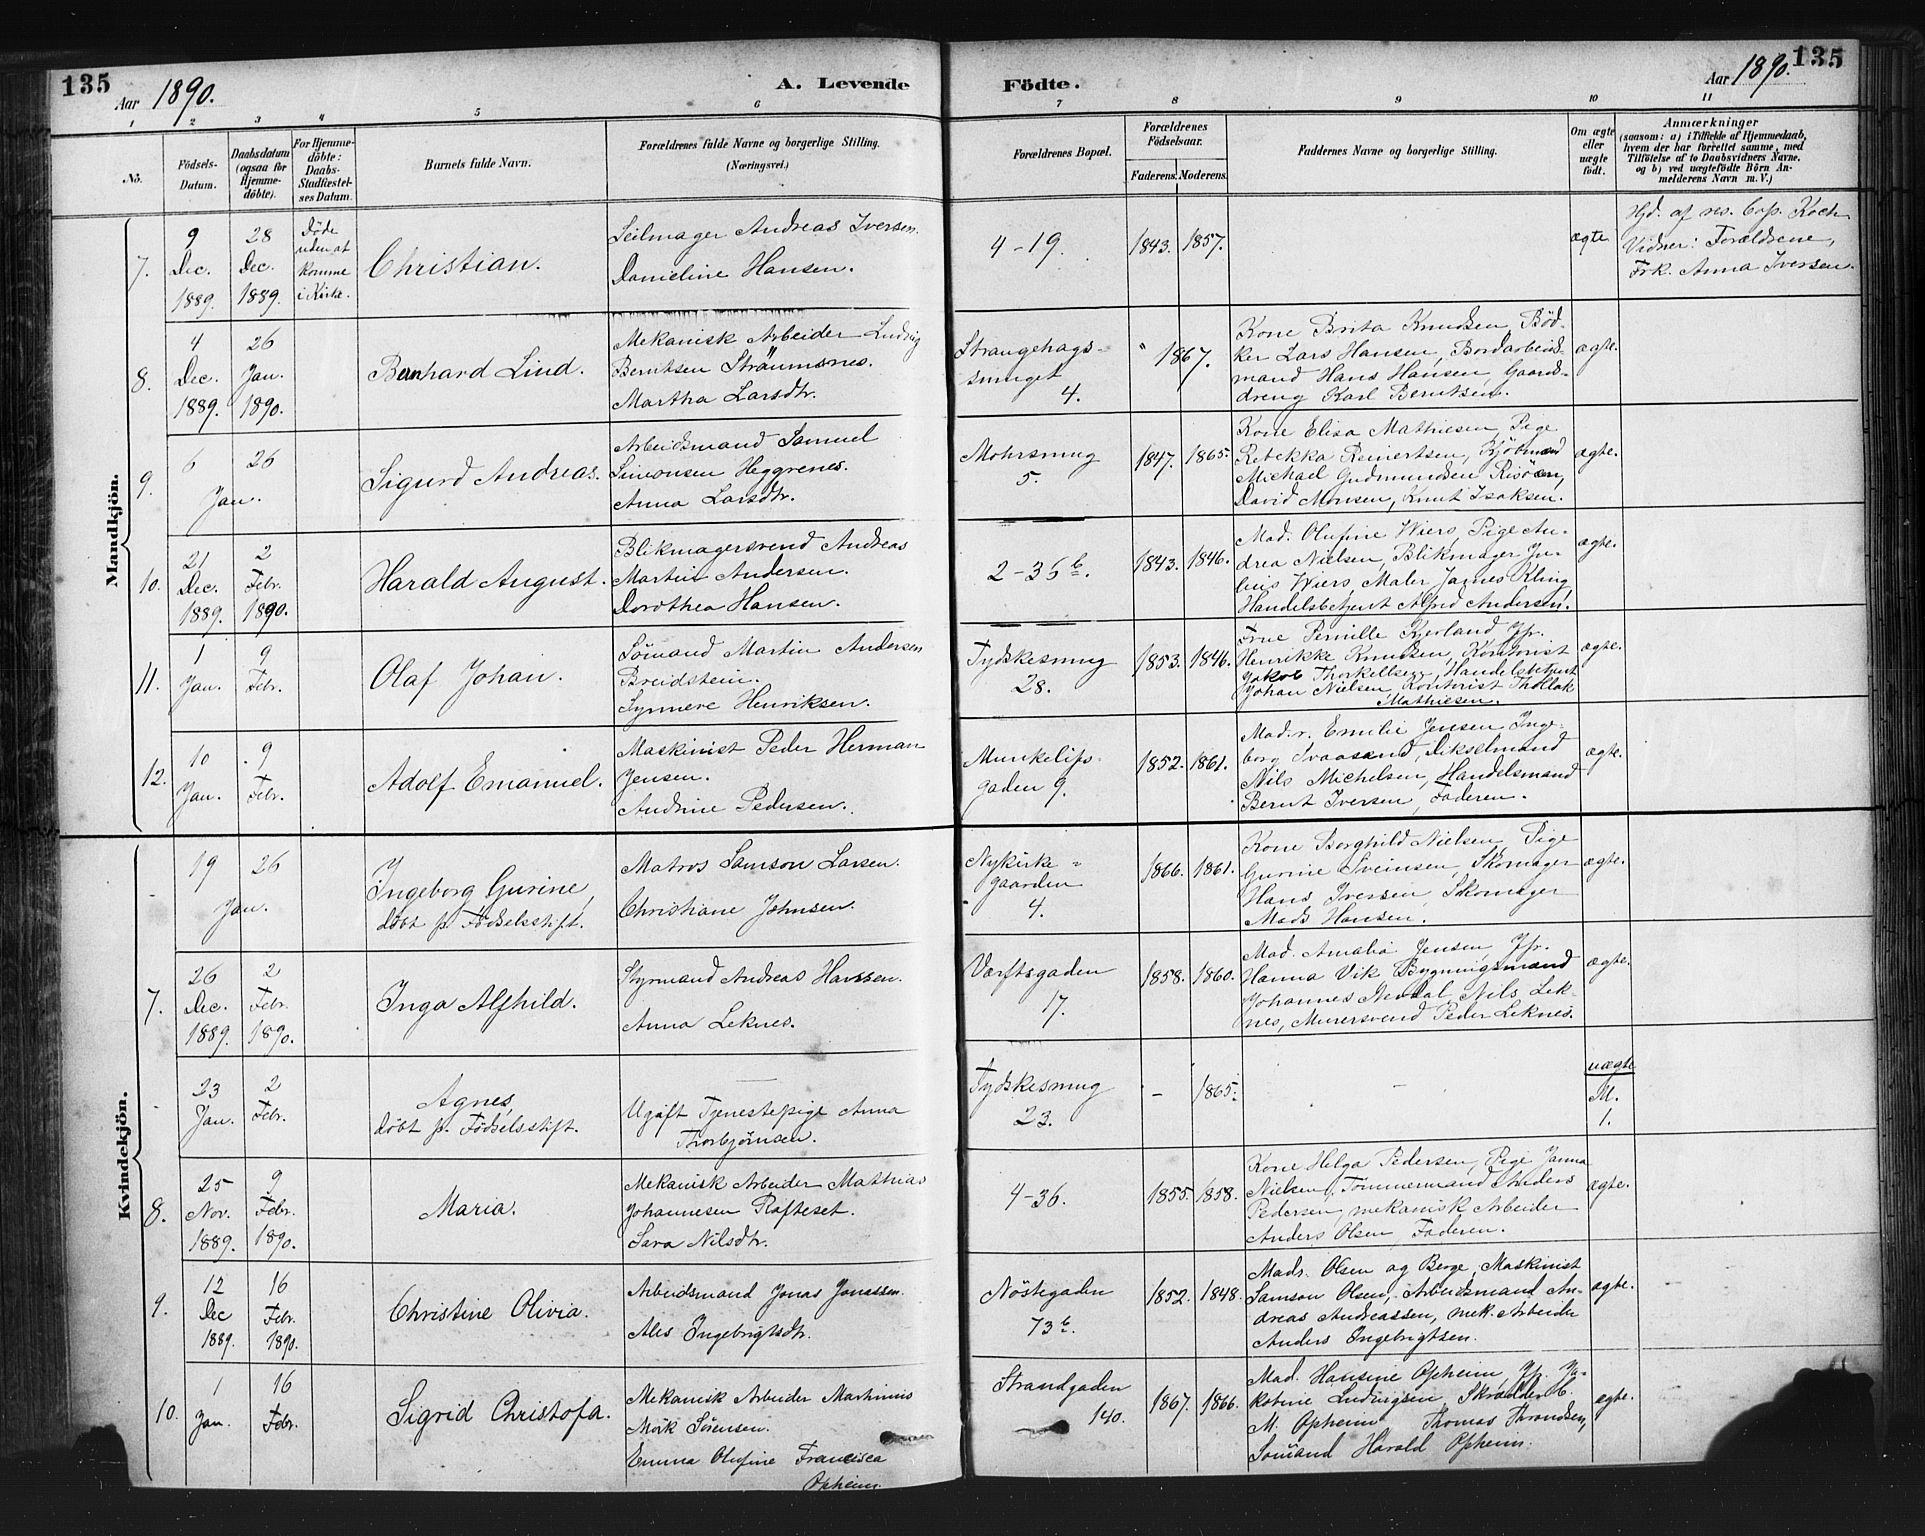 135
Aar 1890.
A. Levende
Födte.
Aar 1890.
135
1 2 3 4 5 6 7 8 9 10 11
No.
Födsels-
Datum.
Daabsdatum
(ogsaa for
Hjemme-
döbte).
For Hjemme-
döbte:
Daabs-
Stadfæstel-
ses Datum.
Barnets fulde Navn.
Forældrenes fulde Navne og borgerlige Stilling.
(Næringsvei.)
Forældrenes Bopæl.
Forældrenes
Födselsaar.
Faderens. Moderens.
Faddernes Navne og borgerlige Stilling.
Om ægte
eller
uægte
födt.
Anmærkninger
(saasom: a) i Tilfælde af Hjemmedaab,
hvem der har forrettet samme, med
Tilföielse af to Daabsvidners Navne,
og b) ved uægtefödte Börn An-
melderens Navn m. V.)
Mandkjön.
7.
9
Dec.
1889.
28
Dec.
1889.
Døde
uden at
komme
i Kirke.
Christian.
Seilmager Andreas Iversen.
Danieline Hansen.
4-19.
1843. 1857.
ægte
Hjd. af res. Cap. Koch
Vidner: Forældrene,
Frk. Anna Iversen.
8.
4
Dec.
1889.
26
Jan.
1890.
Bernhard Lind.
Mekanisk Arbeider Ludvig
Berntsen Straumsnes.
Martha Larsdtr.
Strangehags-
smuget
4.
" 1867.
Kone Brita Knudsen, Bød-
ker Lars Hansen, Bordarbeids-
mand Hans Hansen, Gaards-
dreng Karl Berntsen.
ægte.
9.
6 26
Jan.
Sigurd Andreas.
Arbeidsmand Samuel
Simonsen Heggrenes.
Anna Larsdtr.
Mohrsmug
5.
1847. 1865.
Kone Elisa Mathiesen, Pige
Rebekka Reinertsen, Kjöbmand
Michael Gudmundsen Risöen,
David Monsen, Knut Isaksen.
ægte.
10.
21
Dec.
1889.
2
Febr.
1890.
Harald August.
Blikmagersvend Andreas
Martin Andersen.
Dorothea Hansen.
2-36 b.
1843. 1846.
Mad. Olufine Wiers, Pige An-
drea Nielsen, Blikmager Ju-
lius Wiers, Maler James Kling,
Handelsbetjent Alfred Andersen.
ægte.
11.
1
Jan.
9
Febr.
Olaf Johan.
Sömand Martin Andersen
Breidstein.
Synneve Henriksen.
Tydskesmug
28.
1853. 1846.
Frue Pernille Kjerland, Jfr.
Henrikke Knudsen, Kontorist
Jakob Thorkelsen, Handelsbetjent
Johan Nielsen, Kontorist Thollak
Mathiesen.
ægte.
12.
10
Jan.
9
Febr.
Adolf Emanuel.
Maskinist Peder Herman
Jensen.
Andrine Pedersen.
Munkelifs-
gaden 9.
1852. 1861.
Mad.r. Emilie Jensen, Inge-
borg Svaasand, Dikselmand
Nils Michelsen, Handelsmand
Bernt Iversen, Faderen.
ægte.
Kvindekjön.
19 26
Jan.
Ingeborg Gurine,
døbt p. Fødselsstift.
Matros Samson Larsen.
Christiane Johnsen.
Nykirke-
gaarden
4.
1866. 1861.
Kone Borghild Nielsen, Pige
Gurine Sveinsen, Skomager
Hans Iversen, Skomager
Mads Hansen.
ægte.
7.
26
Dec.
1889.
2
Febr.
1890.
Inga Alfhild.
Styrmand Andreas Hanssen.
Anna Leknes.
Værftsgaden
17.
1858. 1860.
Mad. Amalia Jensen, Jfr.
Hanna Vik, Bygningsmand
Johannes Nerdal, Nils Lek-
nes, Murersvend Peder Leknes.
ægte.
23
Jan.
2
Febr.
Agnes,
døbt p. Fødselsstift.
Ugift Tjenestepige Anna
Thorbjørnsen.
Tydskesmug
23.
- 1865.
-
uægte
M.
1.
8.
25
Nov.
1889.
9
Febr.
1890.
Maria.
Mekanisk Arbeider Mathias
Johannesen Rafteset.
Sara Nilsdtr.
4-36.
1855. 1858.
Kone Helga Pedersen, Pige Janna
Nielsen, Tømmermand Anders
Pedersen, mekanisk Arbeider
Anders Olsen, Faderen.
ægte.
9.
12
Dec
1889.
16
Febr.
1890.
Christine Olivia.
Arbeidsmand Jonas Jonassen.
Ales Ingebrigtsdtr.
Nöstegaden
73 b.
1852. 1848.
Madr. Olsen og Berge, Maskinist
Samson Olsen, Arbeidsmand An-
dreas Andreassen, mek. Arbeider
Anders Ingebrigtsen.
ægte.
10.
1
Jan.
16
Febr.
Sigrid Christofa.
Mekanisk Arbeider Martinius
Mörk Sörensen.
Emma Olufine Francisca
Opheim.
Strandgaden
140.
1867. 1866.
Mad. Hansine Opheim, Jfr. Ja-
kobine Ludvigsen, Skrædder C.
M. Opheim Thomas Throndsen,
Sömand Harald Opheim.
ægte.